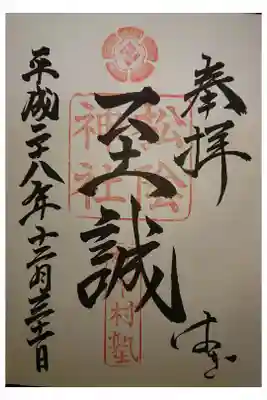 奉拝
はぎ
至誠
松陰
神社
村塾
平成二十八年十二月三十一日